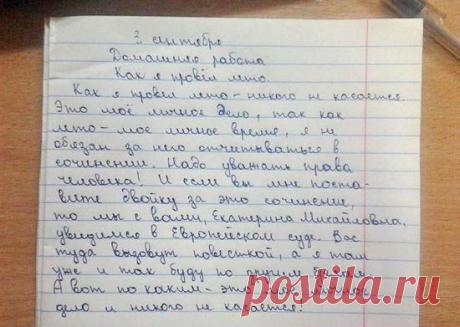 3 сентября
Домашняя работа
Как я провёл лето.
Как я провёл лето - никого не касается.
Это моё личное дело, так как
лето - мое личное время, я не
обязан за него отчитываться в
сочинении. Надо уважать права
человека! И если вы мне поста-
вите двойку за это сочинение,
то мы с вами, Екатерина Михайловна,
увидимся в Европейском суде. Вас
туда вызовут повесткой, а я там
уже и так буду по другим делам.
А вот по каким - это моё личное
дело и никого не касается.
posuta.ru